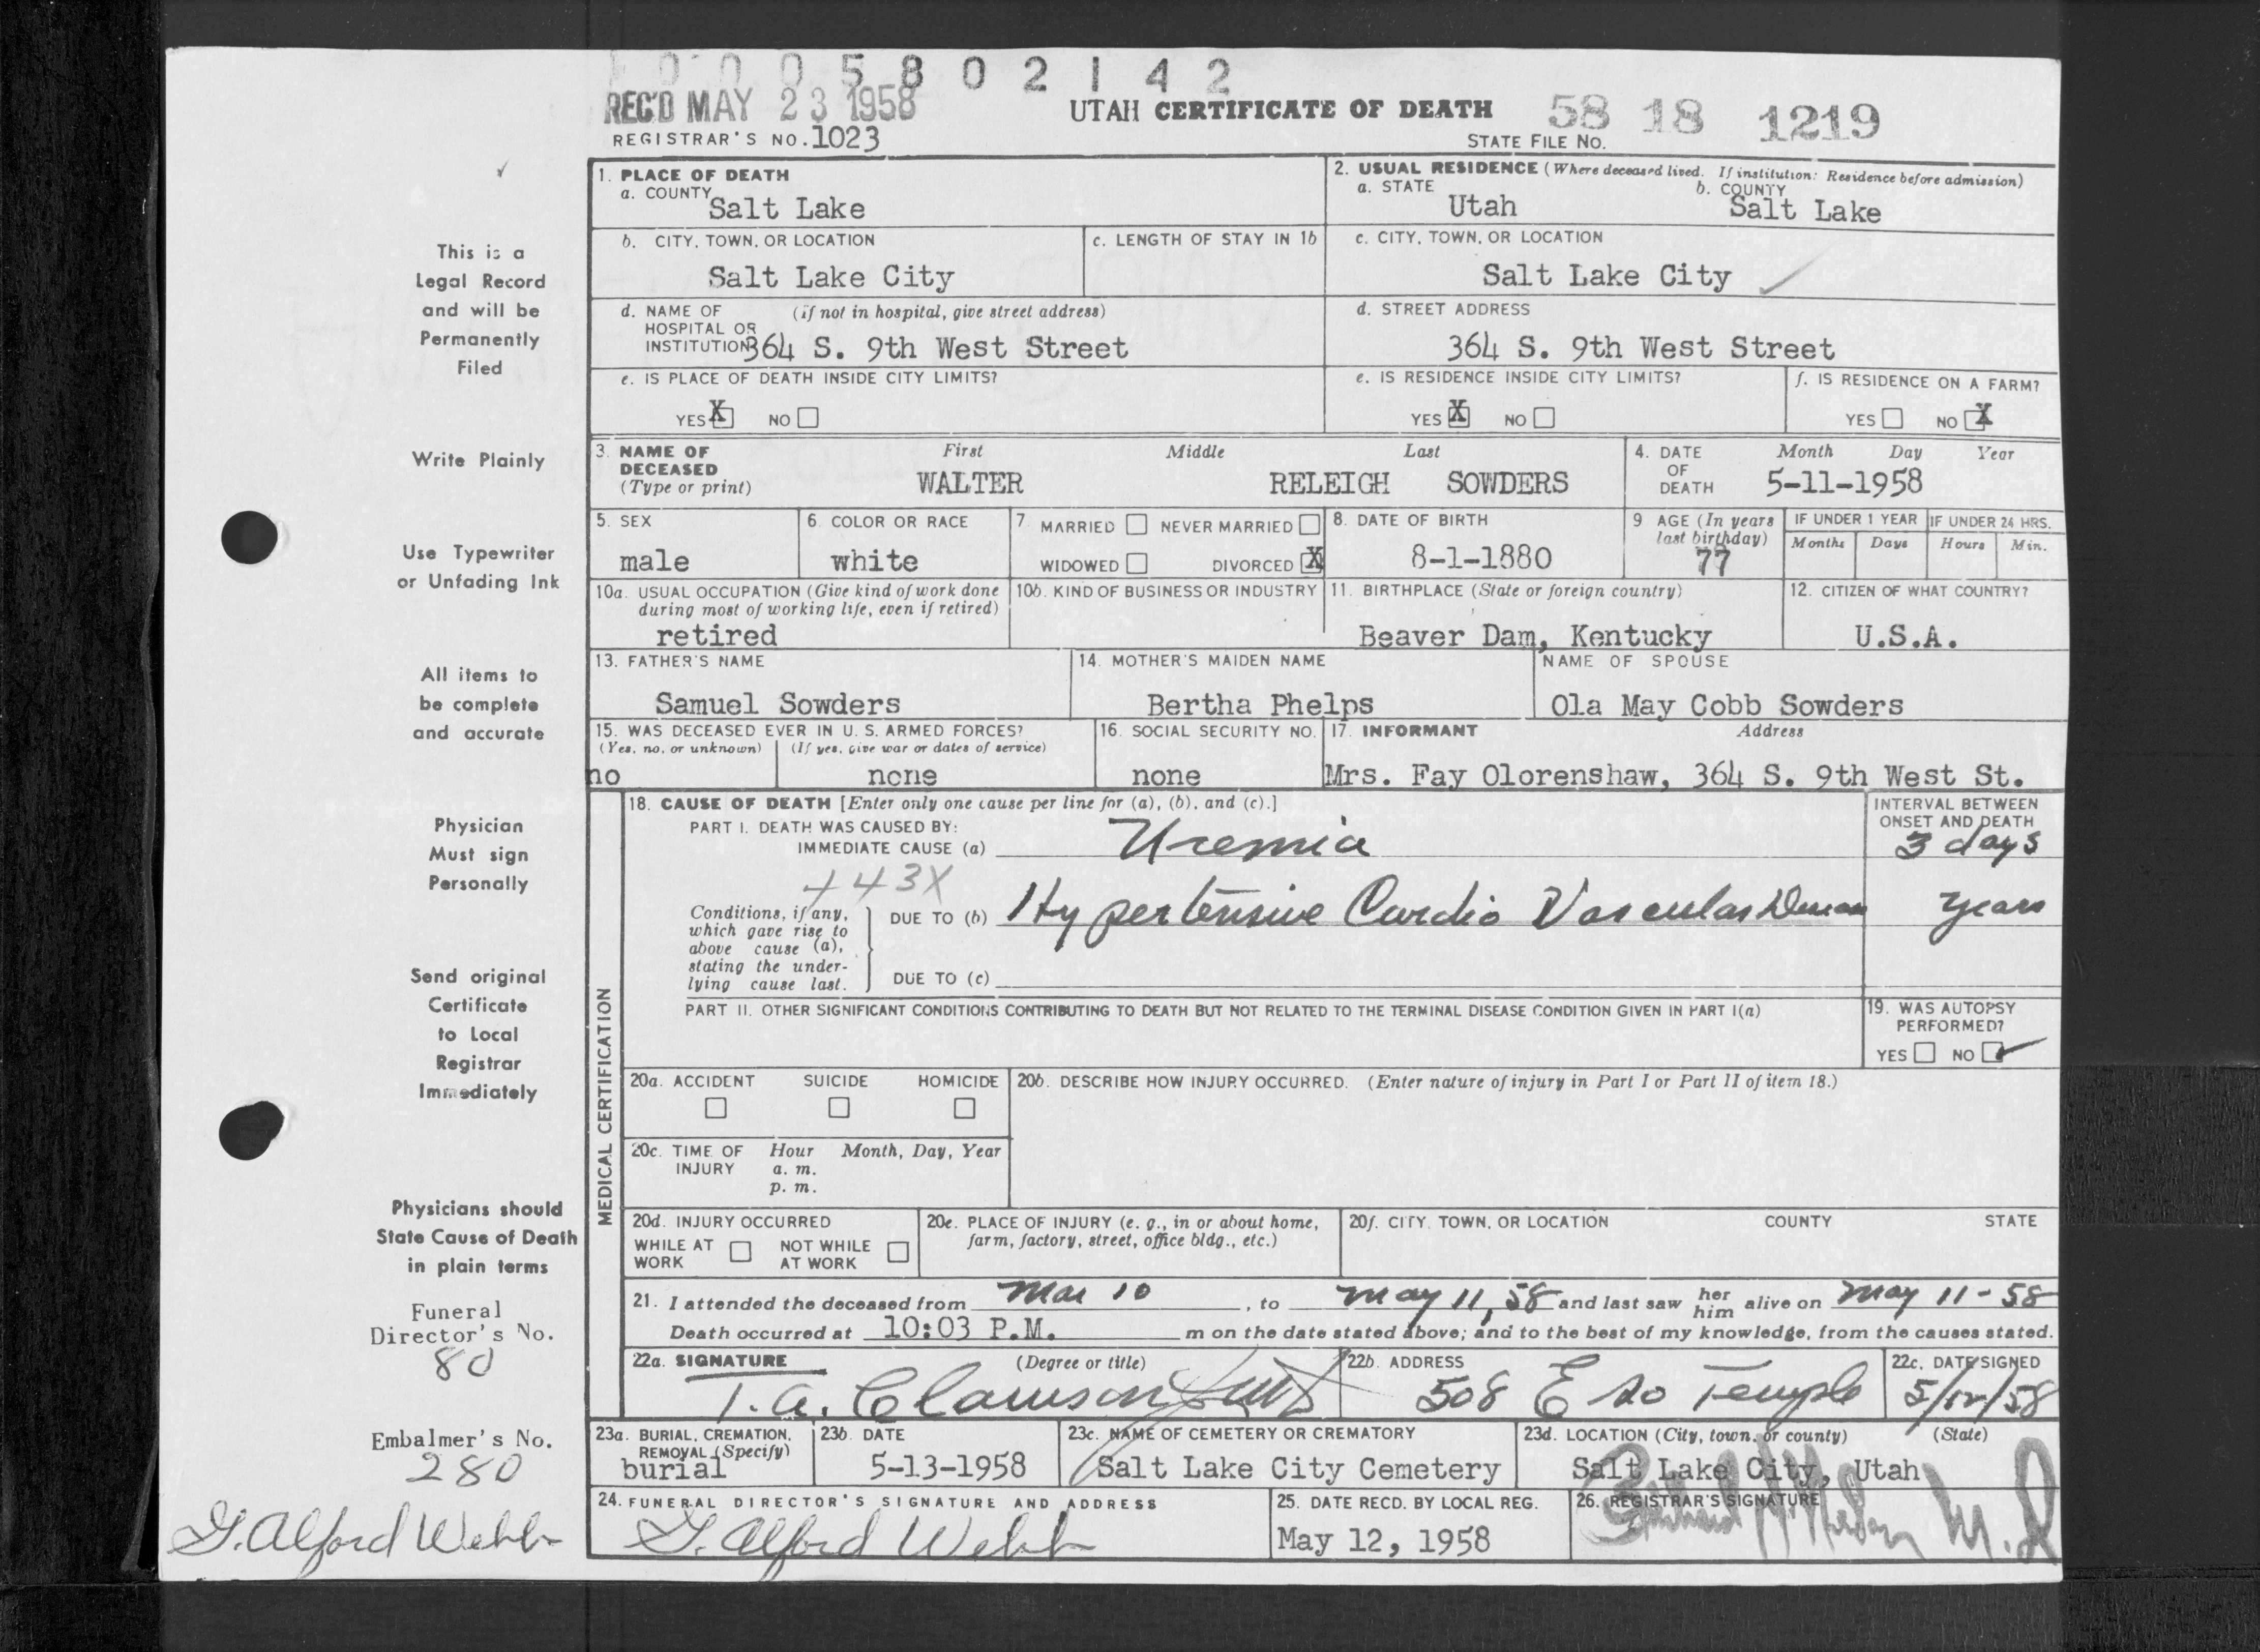 1 0 0 0 5 8 0 2 1 4 2
REC'D MAY 23 1958
UTAH CERTIFICATE OF DEATH
58 18 1219
REGISTRAR'S NO. 1023
STATE FILE NO.
This is a
Legal Record
and will be
Permanently
Filed
Write Plainly
Use Typewriter
or Unfading Ink
All items to
be complete
and accurate
Physician
Must sign
Personally
Send original
Certificate
to Local
Registrar
Immediately
Physicians should
State Cause of Death
in plain terms
Funeral
Director's No.
80
Embalmer's No.
280
G. Alford Webb
1. PLACE OF DEATH
a. COUNTY
Salt Lake
2. USUAL RESIDENCE (Where deceased lived. If institution: Residence before admission)
a. STATE
Utah
b. COUNTY
Salt Lake
b. CITY, TOWN, OR LOCATION
Salt Lake City
c. LENGTH OF STAY IN 1b
c. CITY, TOWN, OR LOCATION
Salt Lake City
d. NAME OF (if not in hospital, give street address)
HOSPITAL OR
INSTITUTION 364 S. 9th West Street
d. STREET ADDRESS
364 S. 9th West Street
e. IS PLACE OF DEATH INSIDE CITY LIMITS?
YES X NO
e. IS RESIDENCE INSIDE CITY LIMITS?
YES X NO
f. IS RESIDENCE ON A FARM?
YES NO X
3. NAME OF
DECEASED
(Type or print)
First Middle Last
WALTER RELEIGH SOWDERS
4. DATE
OF
DEATH
Month Day Year
5-11-1958
5. SEX
male
6. COLOR OR RACE
white
7. MARRIED NEVER MARRIED
WIDOWED DIVORCED X
8. DATE OF BIRTH
8-1-1880
9 AGE (In years
last birthday)
77
IF UNDER 1 YEAR
Months Days
IF UNDER 24 HRS.
Hours Min.
10a. USUAL OCCUPATION (Give kind of work done
during most of working life, even if retired)
retired
10b. KIND OF BUSINESS OR INDUSTRY
11. BIRTHPLACE (State or foreign country)
Beaver Dam, Kentucky
12. CITIZEN OF WHAT COUNTRY?
U.S.A.
13. FATHER'S NAME
Samuel Sowders
14. MOTHER'S MAIDEN NAME
Bertha Phelps
NAME OF SPOUSE
Ola May Cobb Sowders
15. WAS DECEASED EVER IN U. S. ARMED FORCES?
(Yes, no, or unknown) (If yes, give war or dates of service)
no none
16. SOCIAL SECURITY NO.
none
17. INFORMANT Address
Mrs. Fay Olorenshaw, 364 S. 9th West St.
MEDICAL CERTIFICATION
18. CAUSE OF DEATH [Enter only one cause per line for (a), (b), and (c).]
PART I. DEATH WAS CAUSED BY:
IMMEDIATE CAUSE (a) Uremia
INTERVAL BETWEEN
ONSET AND DEATH
3 days
443X
Conditions, if any,
which gave rise to
above cause (a),
stating the under-
lying cause last.
DUE TO (b) Hypertensive Cardio Vascular Disease
years
DUE TO (c)
PART II. OTHER SIGNIFICANT CONDITIONS CONTRIBUTING TO DEATH BUT NOT RELATED TO THE TERMINAL DISEASE CONDITION GIVEN IN PART I(a)
19. WAS AUTOPSY
PERFORMED?
YES NO ✓
20a. ACCIDENT SUICIDE HOMICIDE
20b. DESCRIBE HOW INJURY OCCURRED. (Enter nature of injury in Part I or Part II of item 18.)
20c. TIME OF Hour Month, Day, Year
INJURY a. m.
p. m.
20d. INJURY OCCURRED
WHILE AT NOT WHILE
WORK AT WORK
20e. PLACE OF INJURY (e. g., in or about home,
farm, factory, street, office bldg., etc.)
20f. CITY, TOWN, OR LOCATION COUNTY STATE
21. I attended the deceased from Mar 10, to May 11, 58 and last saw her him alive on May 11-58
Death occurred at 10:03 P.M. m on the date stated above; and to the best of my knowledge, from the causes stated.
22a. SIGNATURE (Degree or title)
T. A. Clawson
22b. ADDRESS
508 E So Temple
22c. DATE SIGNED
5/12/58
23a. BURIAL, CREMATION,
REMOVAL (Specify)
burial
23b. DATE
5-13-1958
23c. NAME OF CEMETERY OR CREMATORY
Salt Lake City Cemetery
23d. LOCATION (City, town, or county) (State)
Salt Lake City, Utah
24. FUNERAL DIRECTOR'S SIGNATURE AND ADDRESS
G. Alford Webb
25. DATE RECD. BY LOCAL REG.
May 12, 1958
26. REGISTRAR'S SIGNATURE
M.D.